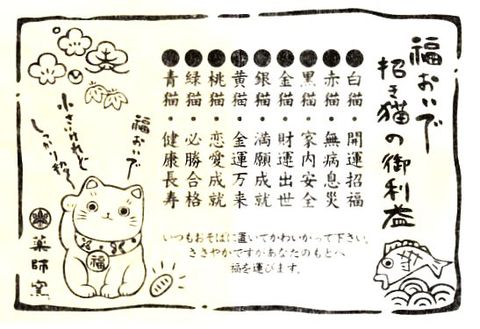 福おいで
招き猫の御利益
白猫・開運招福
赤猫・無病息災
黒猫・家内安全
金猫・財運出世
銀猫・満願成就
黄猫・金運万来
桃猫・恋愛成就
緑猫・必勝合格
青猫・健康長寿
いつもおそばに置いてかわいがって下さい。
ささやかですがあなたのもとへ
福を運びます。
福おいで
小さいけれど
しっかり招き
福
薬師窯